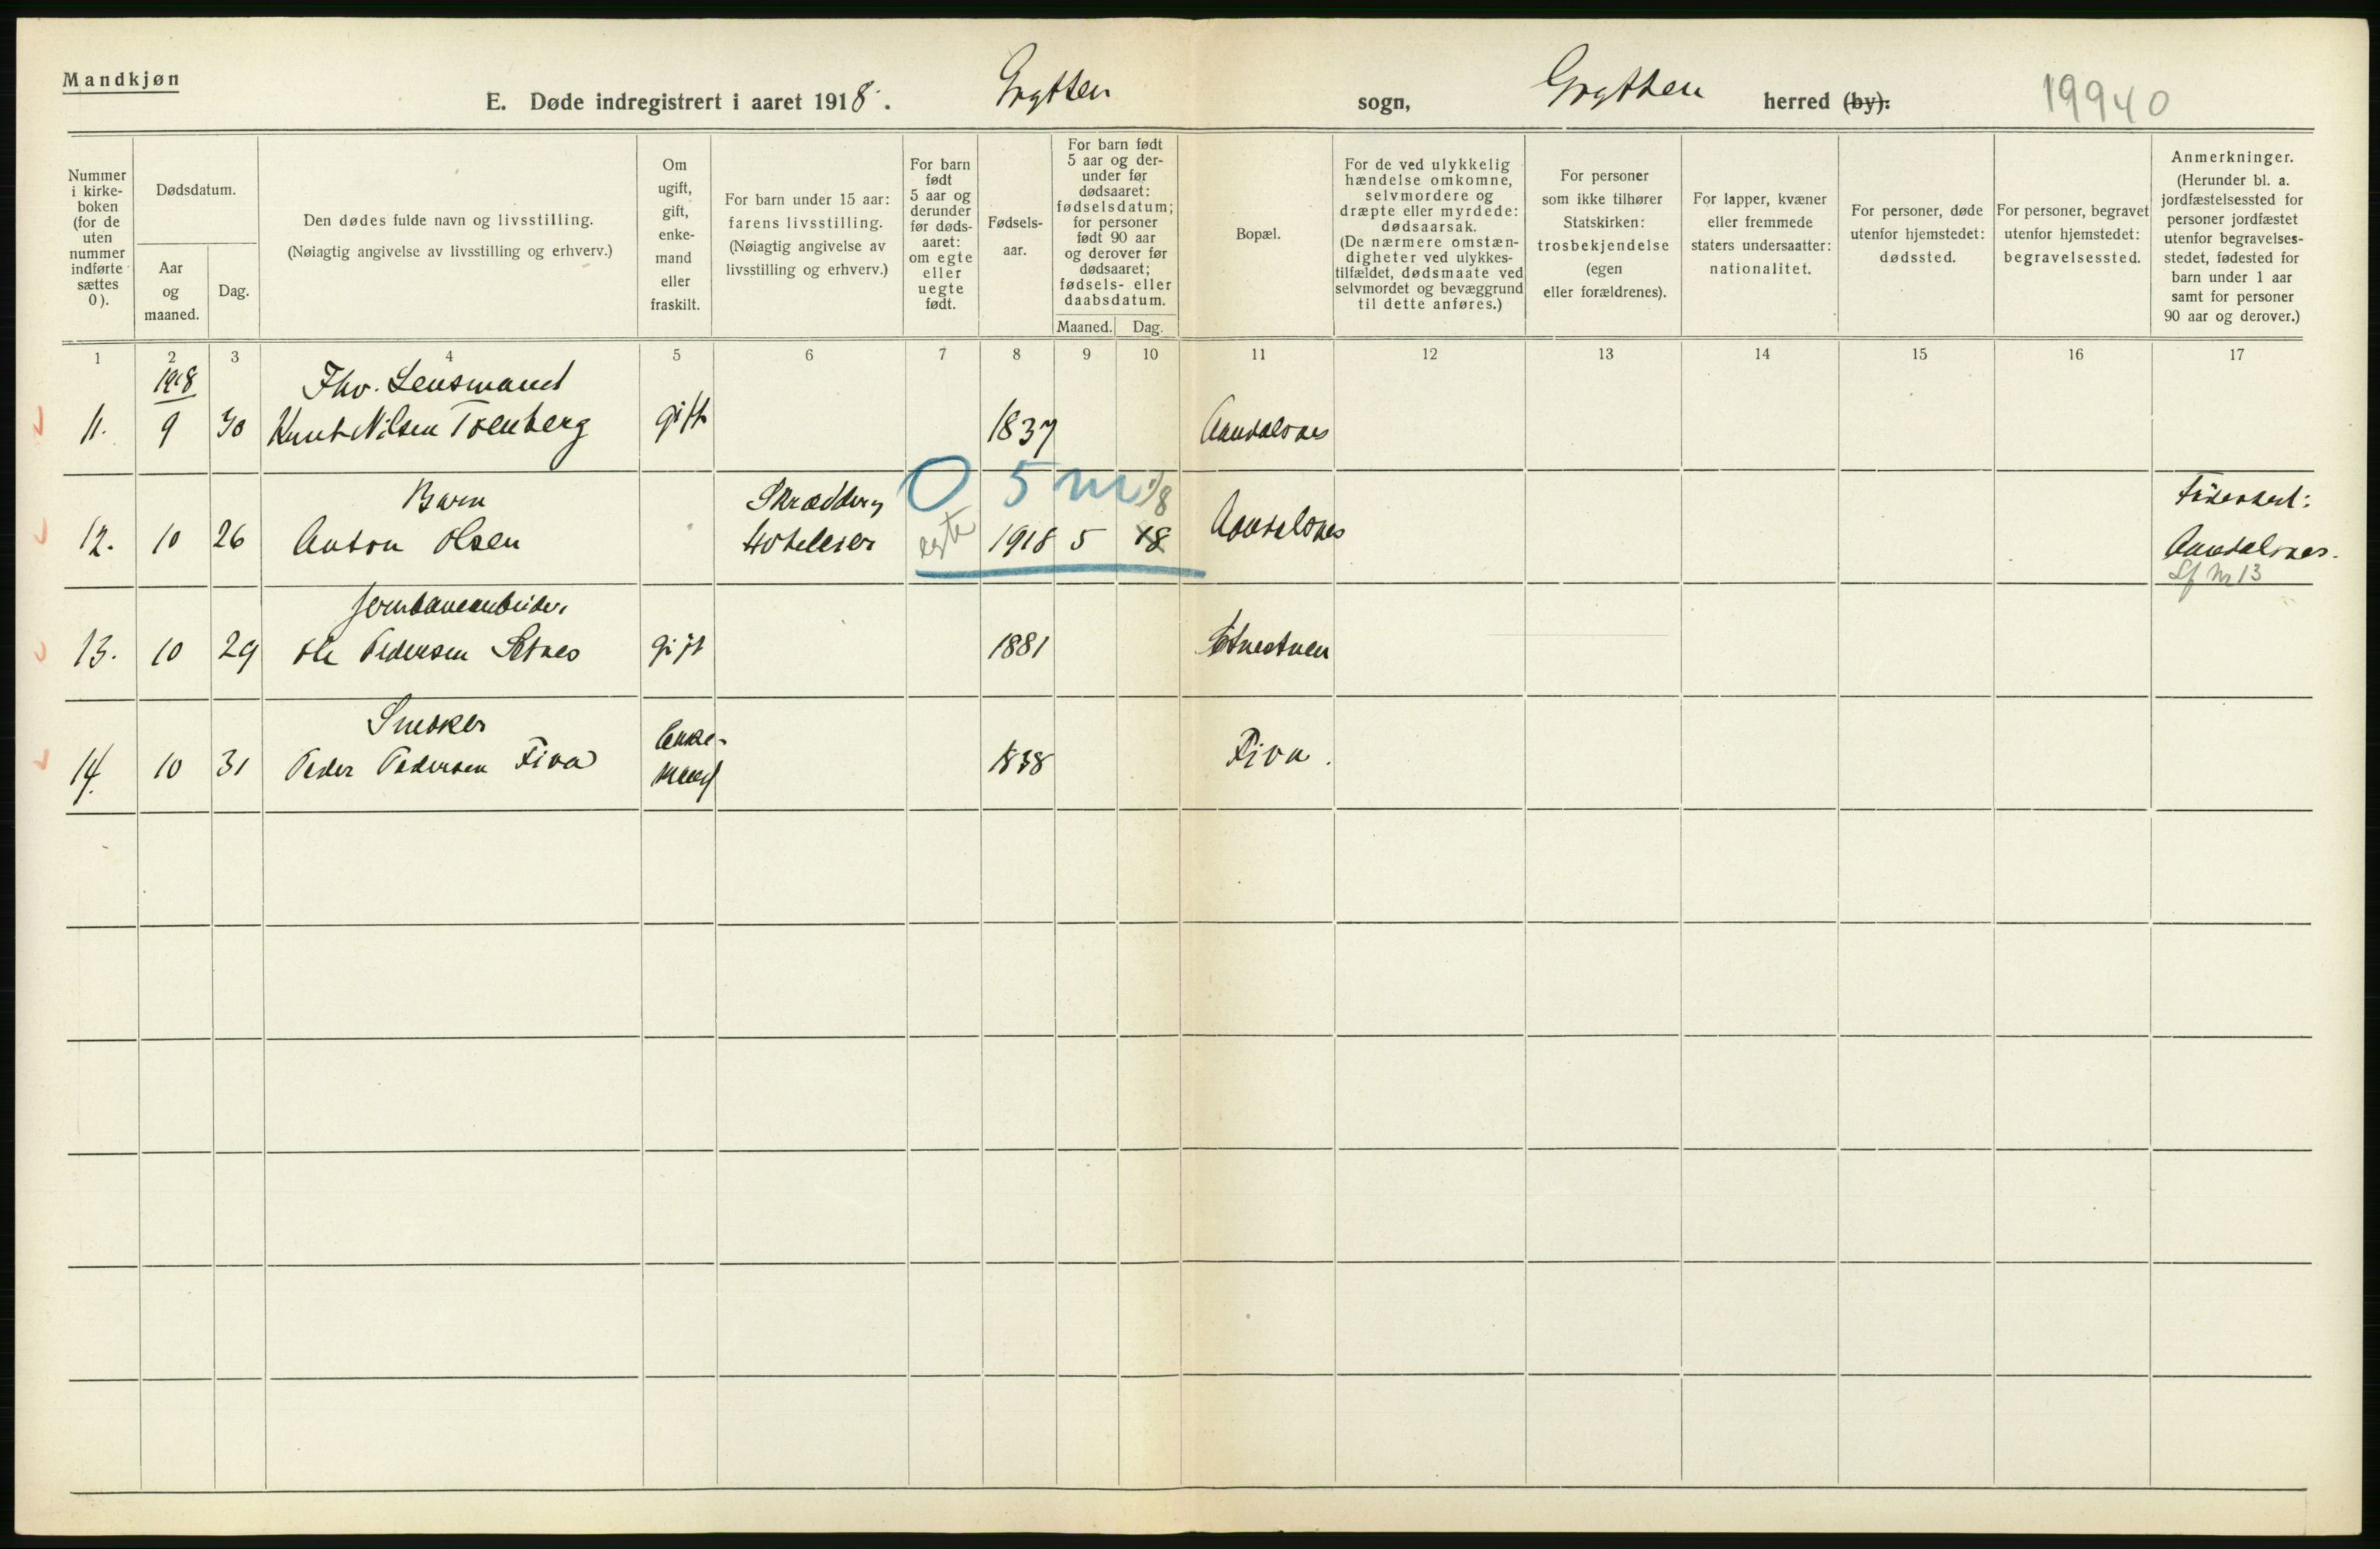 Mandkjøn
E. Døde indregistrert i aaret 1918. Grytten sogn, Grytten herred (by). 19940
Nummer i kirkeboken (for de uten nummer indførte sættes 0).
Dødsdatum.
Aar og maaned.
Dag.
Den dødes fulde navn og livsstilling.
(Nøiagtig angivelse av livsstilling og erhverv.)
Om ugift, gift, enkemand eller fraskilt.
For barn under 15 aar: farens livsstilling.
(Nøiagtig angivelse av livsstilling og erhverv.)
For barn født 5 aar og derunder før dødsaaret: om egte eller uegte født.
Fødselsaar.
For barn født 5 aar og derunder før dødsaaret: fødselsdatum; for personer født 90 aar og derover før dødsaaret; fødsels- eller daabsdatum.
Maaned. Dag.
Bopæl.
For de ved ulykkelig hændelse omkomne, selvmordere og dræpte eller myrdede: dødsaarsak.
(De nærmere omstændigheter ved ulykkestilfældet, dødsmaate ved selvmordet og bevæggrund til dette anføres.)
For personer som ikke tilhører Statskirken: trosbekjendelse (egen eller forældrenes).
For lapper, kvæner eller fremmede staters undersaatter: nationalitet.
For personer, døde utenfor hjemstedet: dødssted.
For personer, begravet utenfor hjemstedet: begravelsessted.
Anmerkninger.
(Herunder bl. a. jordfæstelsessted for personer jordfæstet utenfor begravelsesstedet, fødested for barn under 1 aar samt for personer 90 aar og derover.)
1 2 3 4 5 6 7 8 9 10 11 12 13 14 15 16 17
1918 Fhv. Lensmand
11. 9 Knut Nilsen gift 1837 Aandalsnes
Barn Skrædder 0 5 m Fødested:
12. 10 26 Anton Olsen egte 1918 5 18 Aandalsnes Aandalsnes.
Lf Nr 13
Jernbanearbeider
13. 10 29 Ole Pedersen Setnes gift 1881
Snekker Enke-
14. 10 31 Peder Pedersen Fiva mand 1838 Fiva.